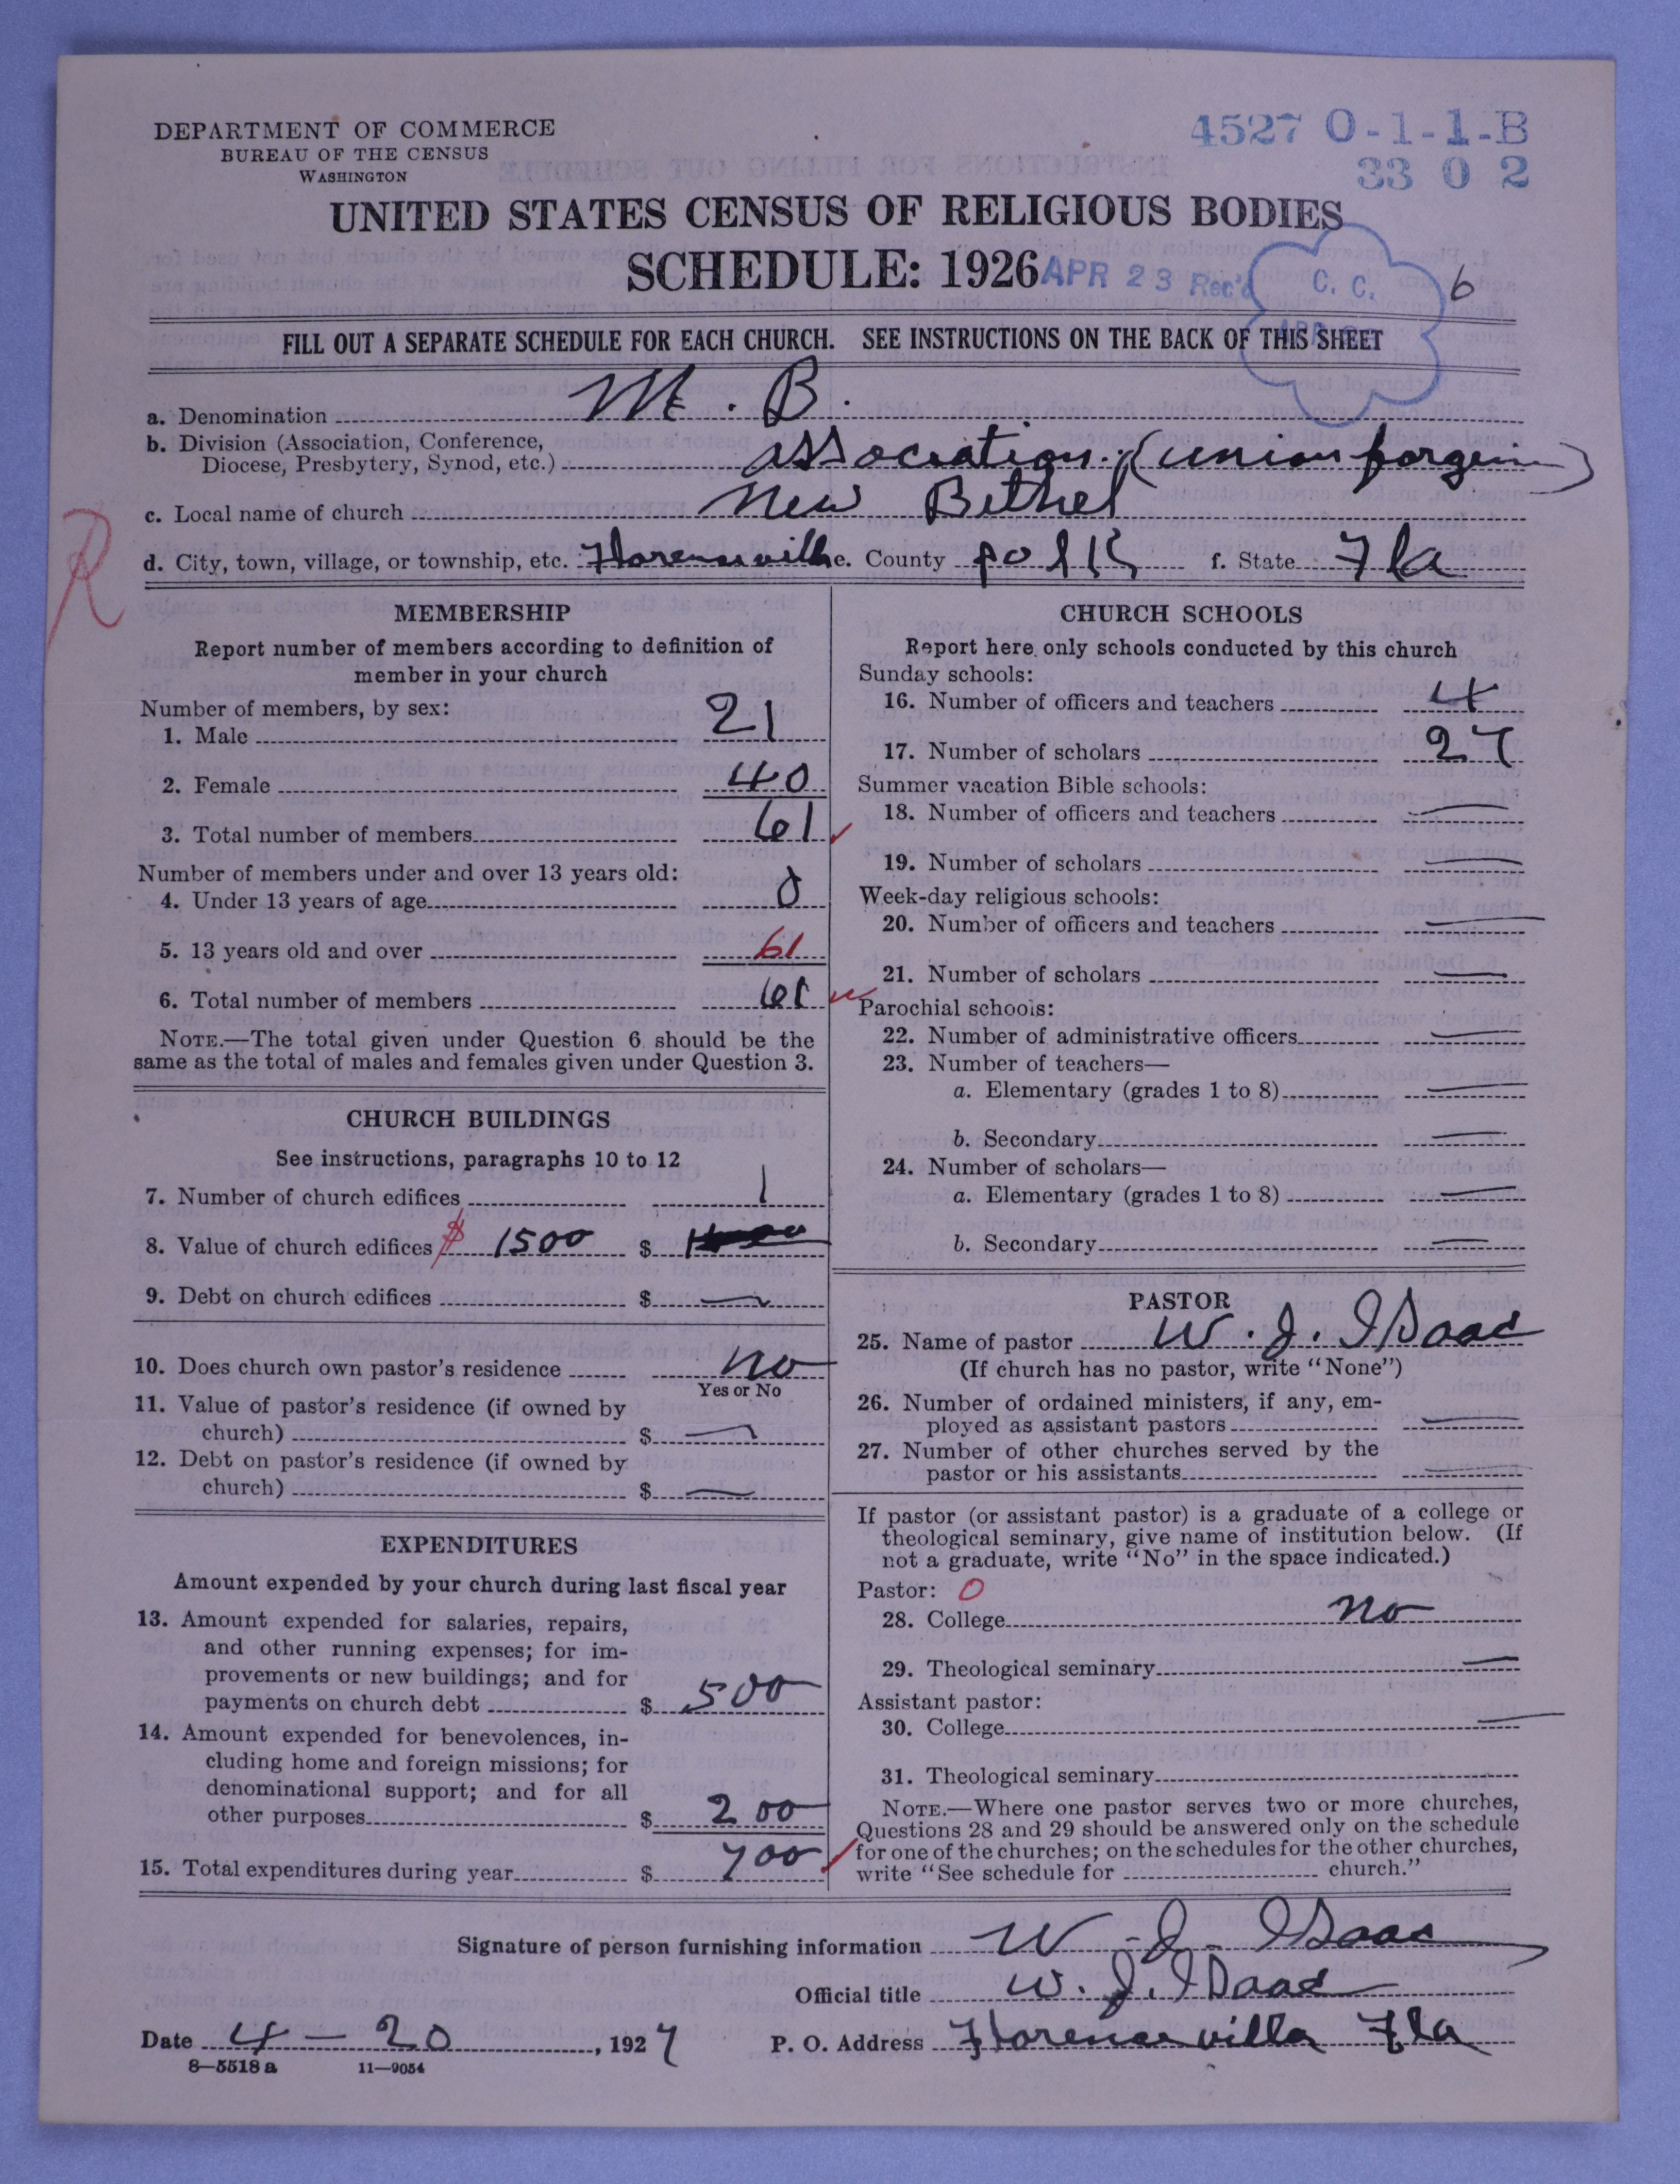 DEPARTMENT OF COMMERCE
BUREAU OF THE CENSUS
WASHINGTON
4527 0-1-1-B
33 0 2
UNITED STATES CENSUS OF RELIGIOUS BODIES
SCHEDULE: 1926
APR 23 Rec'd
C. C.
6
FILL OUT A SEPARATE SCHEDULE FOR EACH CHURCH. SEE INSTRUCTIONS ON THE BACK OF THIS SHEET
a. Denomination M. B.
b. Division (Association, Conference,
Diocese, Presbytery, Synod, etc.) association. (union
c. Local name of church New Bethel
R
d. City, town, village, or township, etc. e. County polk f. State Fla
MEMBERSHIP
Report number of members according to definition of
member in your church
Number of members, by sex:
1. Male 21
2. Female 40
3. Total number of members 61
Number of members under and over 13 years old:
4. Under 13 years of age 0
5. 13 years old and over 61
6. Total number of members 61
NOTE.—The total given under Question 6 should be the
same as the total of males and females given under Question 3.
CHURCH BUILDINGS
See instructions, paragraphs 10 to 12
7. Number of church edifices 1
8. Value of church edifices $ 1500 $
9. Debt on church edifices $ —
10. Does church own pastor's residence no
Yes or No
11. Value of pastor's residence (if owned by
church) $ —
12. Debt on pastor's residence (if owned by
church) $ —
EXPENDITURES
Amount expended by your church during last fiscal year
13. Amount expended for salaries, repairs,
and other running expenses; for im-
provements or new buildings; and for
payments on church debt $ 500
14. Amount expended for benevolences, in-
cluding home and foreign missions; for
denominational support; and for all
other purposes $ 200
15. Total expenditures during year $ 700
CHURCH SCHOOLS
Report here only schools conducted by this church
Sunday schools:
16. Number of officers and teachers 4
17. Number of scholars 27
Summer vacation Bible schools:
18. Number of officers and teachers —
19. Number of scholars —
Week-day religious schools:
20. Number of officers and teachers —
21. Number of scholars —
Parochial schools:
22. Number of administrative officers —
23. Number of teachers—
a. Elementary (grades 1 to 8) —
b. Secondary —
24. Number of scholars—
a. Elementary (grades 1 to 8) —
b. Secondary —
PASTOR
25. Name of pastor W. J. Isaac
(If church has no pastor, write "None")
26. Number of ordained ministers, if any, em-
ployed as assistant pastors —
27. Number of other churches served by the
pastor or his assistants —
If pastor (or assistant pastor) is a graduate of a college or
theological seminary, give name of institution below. (If
not a graduate, write "No" in the space indicated.)
Pastor: 0
28. College no
29. Theological seminary —
Assistant pastor:
30. College —
31. Theological seminary
NOTE.—Where one pastor serves two or more churches,
Questions 28 and 29 should be answered only on the schedule
for one of the churches; on the schedules for the other churches,
write "See schedule for church."
Signature of person furnishing information W. J. Isaac
Official title W. J. Isaac
Date 4 - 20, 1927 P. O. Address Florence villa Fla
8—5518 a 11—9054